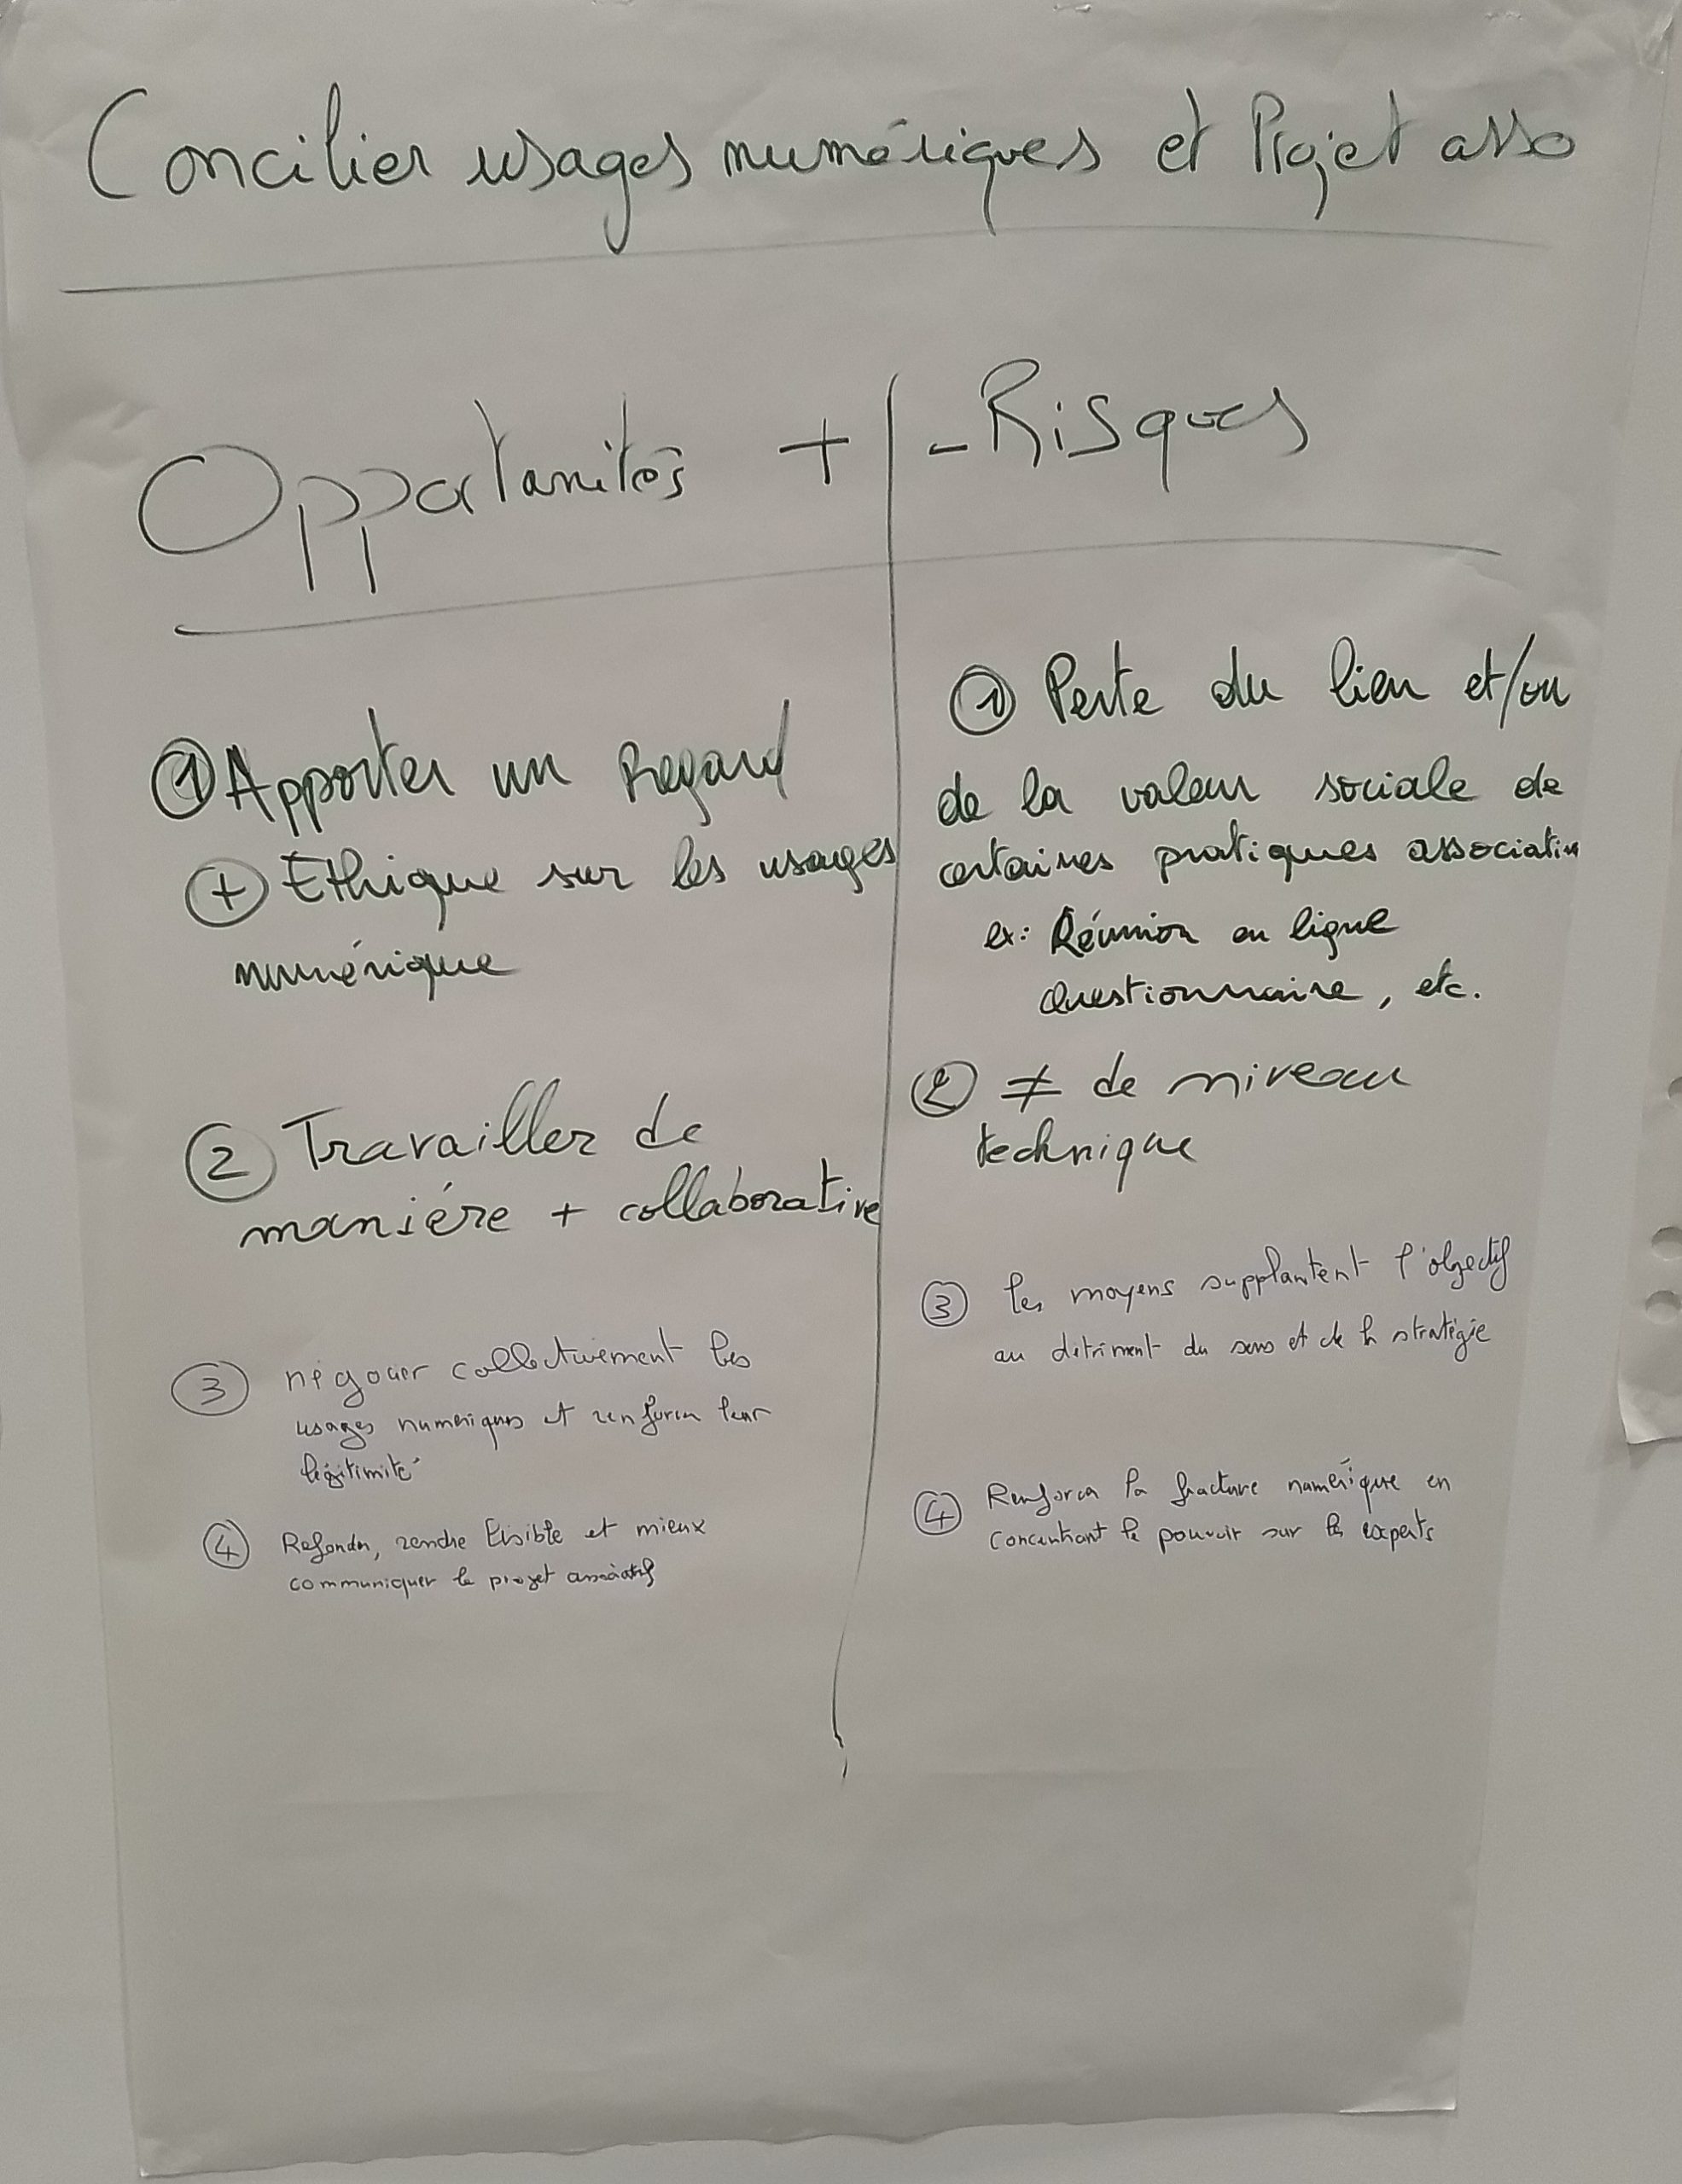 Concilier usages numériques et Projet asso
Opportunités +
- Risques
① Apporter un Regard
⊕ Ethique sur les usages
numérique
② Travailler de
manière + collaborative
③ négocier collectivement les
usages numériques et renforcer leur
légitimité
④ Refonder, rendre lisible et mieux
communiquer le projet associatif
① Perte du lien et/ou
de la valeur sociale de
certaines pratiques associatives
ex: Réunion en ligne
Questionnaire, etc.
② ≠ de niveau
technique
③ les moyens supplantent l'objectif
au détriment du sens et de la stratégie
④ Renforcer la fracture numérique en
concentrant le pouvoir sur les experts